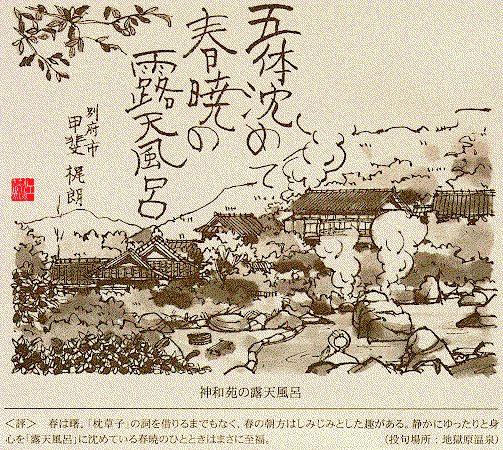 五体沈めて
春暁の
露天風呂
別府市
甲斐梶朗
神和苑の露天風呂
＜評＞　春は曙。「枕草子」の詞を借りるまでもなく、春の朝方はしみじみとした趣がある。静かにゆったりと身
心を「露天風呂」に沈めている春暁のひとときはまさに至福。　（投句場所：地獄原温泉）